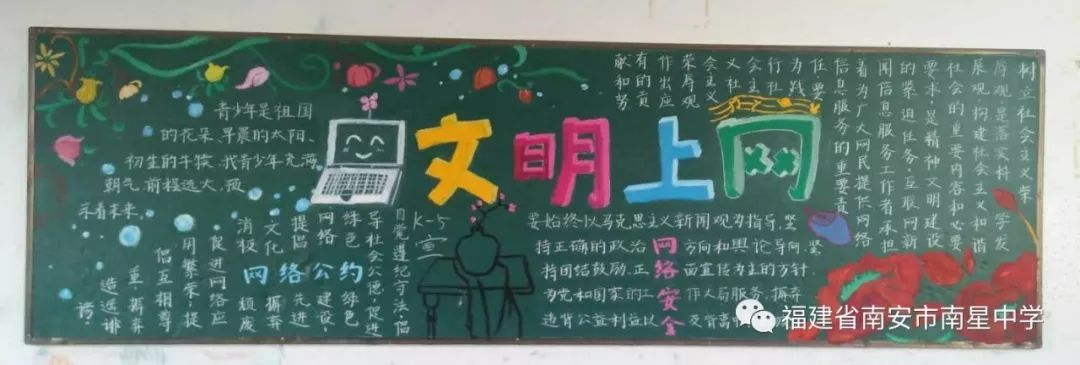 文明上网
青少年是祖国
的花朵、早晨的太阳、
初生的牛犊.我青少年充满
朝气.前程远大,预
示着未来.
K-5
室
自觉遵纪守法,倡
导社会公德,促进
绿色 绿色
网络 建设,
提倡 先进
文化 摒弃
消极 颓废
促进网络应
用繁荣;提
倡互相尊
重,摒弃
造谣诽
谤.
网络公约
要始终以马克思主义新闻观为指导,坚
持正确的政治方向和舆论导向,坚
持团结鼓励.正面宣传为主的方针.
为党和国家的工作大局服务,摒弃
违背公益利益以及背离
网络安全
树立社会主义荣
辱观,是落实科学发
展观,构建社会主义和谐
社会的重要内容和必要
要求,是精神文明建设
的紧迫任务.互联网新
闻信息服务工作者承担
着为广大网民提供网络
信息服务的重要责
任,要
为践
行社
会主义
荣辱观
作出应
有的贡
献和努
福建省南安市南星中学